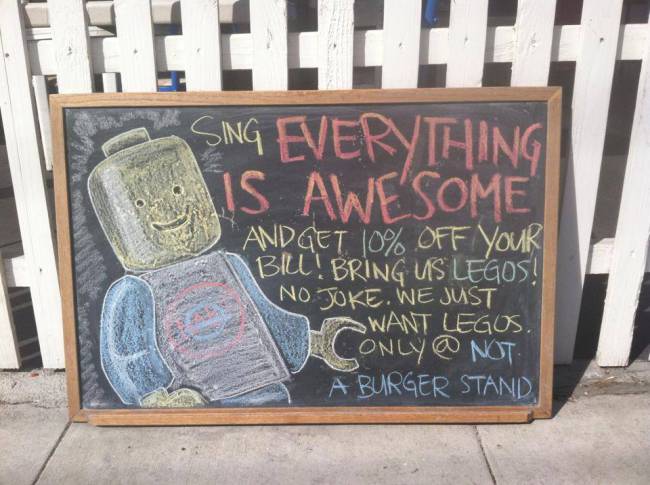 SING EVERYTHING
IS AWESOME
AND GET 10% OFF YOUR
BILL! BRING US LEGOS!
NO JOKE. WE JUST
WANT LEGOS.
ONLY @ NOT
A BURGER STAND